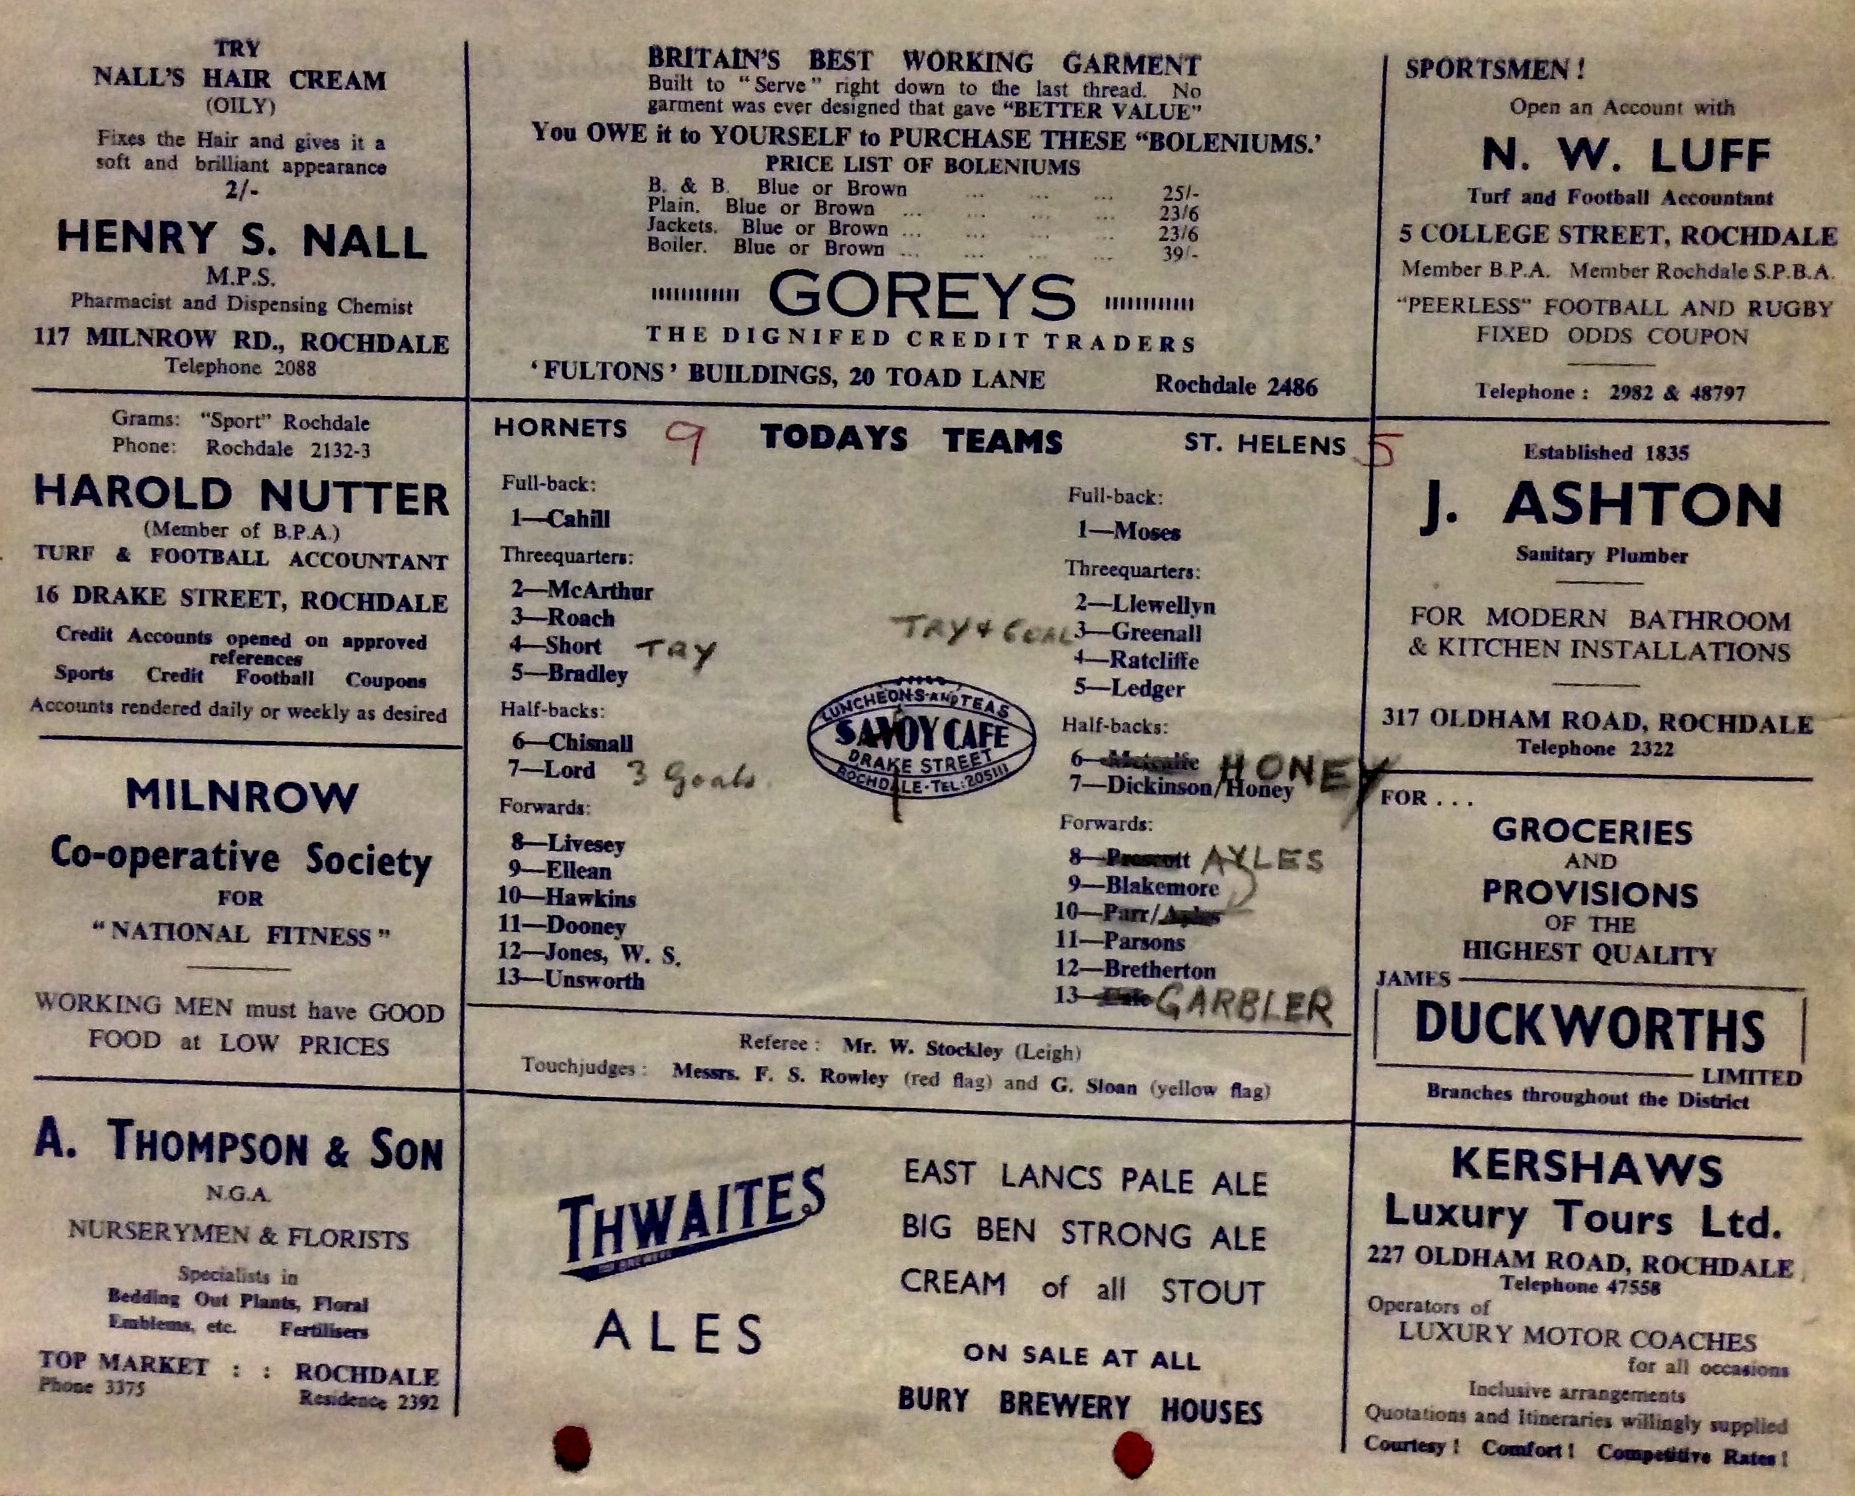 TRY
NALL'S HAIR CREAM
(OILY)
Fixes the Hair and gives it a
soft and brilliant appearance
2/-
HENRY S. NALL
M.P.S.
Pharmacist and Dispensing Chemist
117 MILNROW RD., ROCHDALE
Telephone 2088
Grams: "Sport" Rochdale
Phone: Rochdale 2132-3
HAROLD NUTTER
(Member of B.P.A.)
TURF & FOOTBALL ACCOUNTANT
16 DRAKE STREET, ROCHDALE
Credit Accounts opened on approved
references
Sports Credit Football Coupons
Accounts rendered daily or weekly as desired
MILNROW
Co-operative Society
FOR
"NATIONAL FITNESS"
WORKING MEN must have GOOD
FOOD at LOW PRICES
A. THOMPSON & SON
N.G.A.
NURSERYMEN & FLORISTS
Specialists in
Bedding Out Plants, Floral
Emblems, etc. Fertilisers
TOP MARKET : : ROCHDALE
Phone 3375 Residence 2392
BRITAIN'S BEST WORKING GARMENT
Built to "Serve" right down to the last thread. No
garment was ever designed that gave "BETTER VALUE"
You OWE it to YOURSELF to PURCHASE THESE "BOLENIUMS.'
PRICE LIST OF BOLENIUMS
B. & B. Blue or Brown ... ... ... 25/-
Plain. Blue or Brown ... ... ... ... 23/6
Jackets. Blue or Brown ... ... ... ... 23/6
Boiler. Blue or Brown ... ... ... ... 39/-
GOREYS
THE DIGNIFED CREDIT TRADERS
'FULTONS' BUILDINGS, 20 TOAD LANE Rochdale 2486
HORNETS 9 TODAYS TEAMS ST. HELENS 5
Full-back:
1—Cahill
Threequarters:
2—McArthur
3—Roach
4—Short TRY
5—Bradley
Half-backs:
6—Chisnall
7—Lord 3 Goals.
Forwards:
8—Livesey
9—Ellean
10—Hawkins
11—Dooney
12—Jones, W. S.
13—Unsworth
LUNCHEONS AND TEAS
SAVOY CAFE
DRAKE STREET
ROCHDALE·TEL: 2051
Full-back:
1—Moses
Threequarters:
2—Llewellyn
TRY & GOAL 3—Greenall
4—Ratcliffe
5—Ledger
Half-backs:
6—Metcalfe HONEY
7—Dickinson/Honey
Forwards:
8—Prescott AYLES
9—Blakemore
10—Parr/Ayles
11—Parsons
12—Bretherton
13— GARBLER
Referee: Mr. W. Stockley (Leigh)
Touchjudges: Messrs. F. S. Rowley (red flag) and G. Sloan (yellow flag)
THWAITES
ALES
EAST LANCS PALE ALE
BIG BEN STRONG ALE
CREAM of all STOUT
ON SALE AT ALL
BURY BREWERY HOUSES
SPORTSMEN!
Open an Account with
N. W. LUFF
Turf and Football Accountant
5 COLLEGE STREET, ROCHDALE
Member B.P.A. Member Rochdale S.P.B.A.
"PEERLESS" FOOTBALL AND RUGBY
FIXED ODDS COUPON
Telephone: 2982 & 48797
Established 1835
J. ASHTON
Sanitary Plumber
FOR MODERN BATHROOM
& KITCHEN INSTALLATIONS
317 OLDHAM ROAD, ROCHDALE
Telephone 2322
FOR ...
GROCERIES
AND
PROVISIONS
OF THE
HIGHEST QUALITY
JAMES
DUCKWORTHS
LIMITED
Branches throughout the District
KERSHAWS
Luxury Tours Ltd.
227 OLDHAM ROAD, ROCHDALE
Telephone 47558
Operators of
LUXURY MOTOR COACHES
for all occasions
Inclusive arrangements
Quotations and Itineraries willingly supplied
Courtesy! Comfort! Competitive Rates!